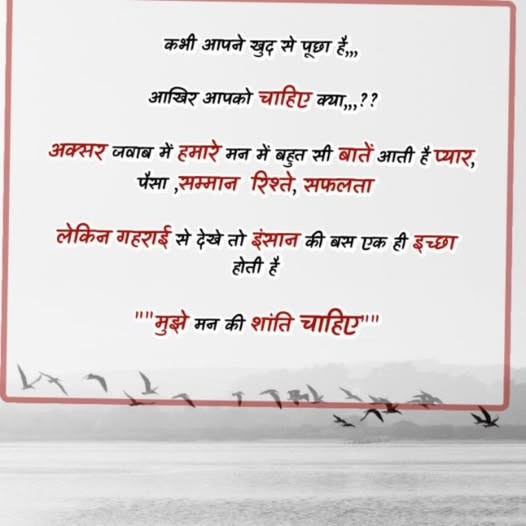 कभी आपने खुद से पूछा है,,,
आखिर आपको चाहिए क्या,,,??
अक्सर जवाब में हमारे मन में बहुत सी बातें आती है प्यार,
पैसा ,सम्मान रिश्ते, सफलता
लेकिन गहराई से देखे तो इंसान की बस एक ही इच्छा
होती है
""मुझे मन की शांति चाहिए""